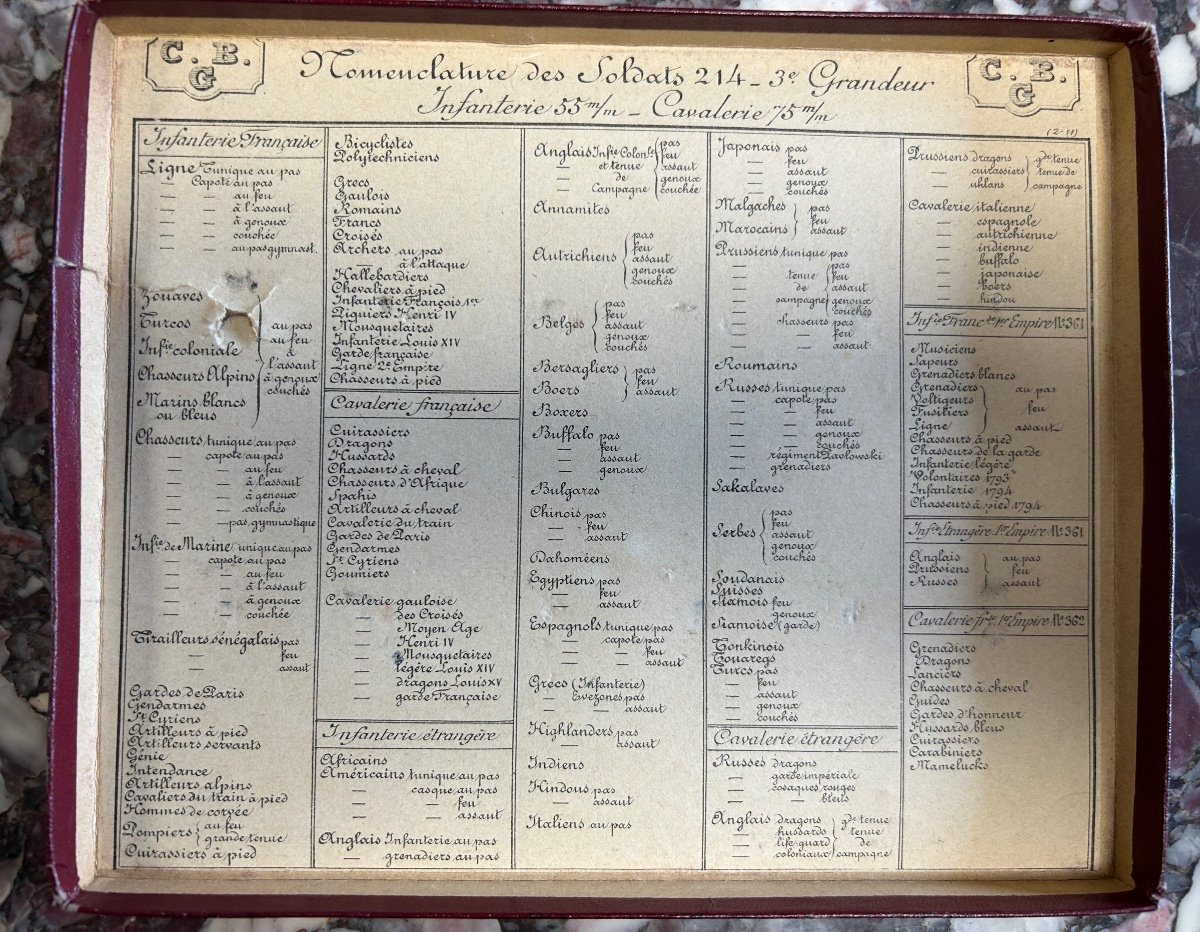 C. B. G
Nomenclature des Soldats 214 _ 3e Grandeur
C. B. G
Infanterie 55 m/m _ Cavalerie 75 m/m
(2-11)
Infanterie Française
Ligne Tunique au pas
— Capote au pas
— — au feu
— — à l'assaut
— — à genoux
— — couchée
— — au pas gymnast.
Zouaves
Turcos
Infie coloniale
Chasseurs Alpins
Marins blancs
ou bleus
au pas
au feu
à
l'assaut
à genoux
couchés
Chasseurs tunique au pas
— capote au pas
— — au feu
— — à l'assaut
— — à genoux
— — couchés
— — pas gymnastique
Infie de Marine tunique au pas
— capote au pas
— — au feu
— — à l'assaut
— — à genoux
— — couchée
Tirailleurs sénégalais pas
— feu
— assaut
Gardes de Paris
Gendarmes
St Cyriens
Artilleurs à pied
Artilleurs servants
Génie
Intendance
Artilleurs alpins
Cavaliers du train à pied
Hommes de corvée
Pompiers { au feu
grande tenue
Cuirassiers à pied
Bicyclistes
Polytechniciens
Grecs
Gaulois
Romains
Francs
Croisés
Archers au pas
à l'attaque
Hallebardiers
Chevaliers à pied
Infanterie François 1er
Piquiers Henri IV
Mousquetaires
Infanterie Louis XIV
Garde française
Ligne 2e Empire
Chasseurs à pied
Cavalerie française
Cuirassiers
Dragons
Hussards
Chasseurs à cheval
Chasseurs d'Afrique
Spahis
Artilleurs à cheval
Cavalerie du train
Gardes de Paris
Gendarmes
St Cyriens
Goumiers
Cavalerie gauloise
— des Croisés
— Moyen Age
— Henri IV
— Mousquetaires
— légère Louis XIV
— dragons Louis XV
— garde Française
Infanterie étrangère
Africains
Américains tunique au pas
— casque au pas
— — feu
— — assaut
Anglais Infanterie au pas
— grenadiers au pas
Anglais Infie Colonle { pas
— et tenue feu
— de assaut
— Campagne genoux
couchée
Annamites
Autrichiens { pas
feu
assaut
genoux
couchés
Belges { pas
feu
assaut
genoux
couchés
Bersagliers } pas
feu
Boers assaut
Boxers
Buffalo pas
— feu
— assaut
— genoux
Bulgares
Chinois pas
— feu
— assaut
Dahoméens
Egyptiens pas
— feu
— assaut
Espagnols tunique pas
— capote pas
— — feu
— — assaut
Grecs (Infanterie)
— Evezones pas
— — assaut
Highlanders pas
— assaut
Indiens
Hindous pas
— assaut
Italiens au pas
Japonais pas
— feu
— assaut
— genoux
— couchés
Malgaches } pas
feu
Marocains assaut
Prussiens tunique pas
— { pas
— tenue feu
— de assaut
— campagne genoux
— couchés
— chasseurs pas
— — feu
— — assaut
Roumains
Russes tunique pas
— capote pas
— — feu
— — assaut
— — genoux
— — couchés
— régiment Pavlowski
— grenadiers
Sakalaves
Serbes { pas
feu
assaut
genoux
couchés
Soudanais
Suisses
Siamois feu
— genoux
Siamoise (garde)
Tonkinois
Touaregs
Turcs pas
— feu
— assaut
— genoux
— couchés
Cavalerie étrangère
Russes dragons
— garde impériale
— cosaques rouges
— — bleus
Anglais dragons { gde tenue
— hussards tenue
— life-guard de
— coloniaux campagne
Prussiens dragons { gde tenue
— cuirassiers tenue de
— uhlans campagne
Cavalerie italienne
— espagnole
— autrichienne
— indienne
— buffalo
— japonaise
— boers
— hindou
Infie Francse 1er Empire No 361
Musiciens
Sapeurs
Grenadiers blancs
Grenadiers } au pas
Voltigeurs
Fusiliers feu
Ligne assaut
Chasseurs à pied
Chasseurs de la garde
Infanterie légère
Volontaires 1793
Infanterie 1794
Chasseurs à pied 1794
Infie Etrangère 1er Empire No 361
Anglais } au pas
Prussiens feu
Russes assaut
Cavalerie frse 1er Empire No 362
Grenadiers
Dragons
Lanciers
Chasseurs à cheval
Guides
Gardes d'honneur
Hussards bleus
Cuirassiers
Carabiniers
Mamelucks